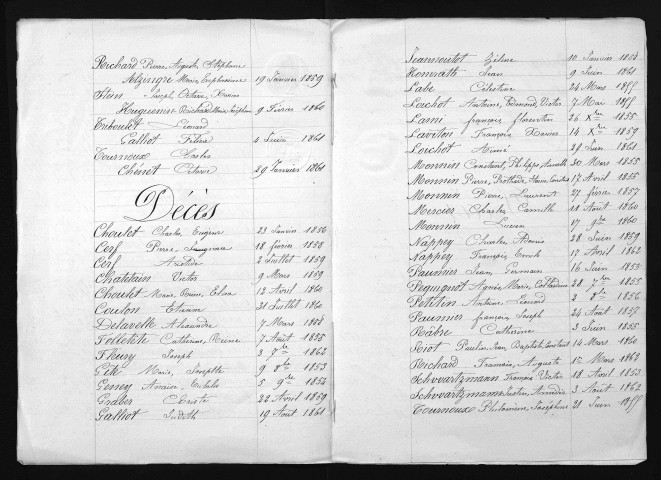 Richard Pierre, Auguste, Stéphane
Marie, Euphrosine 19 Janvier 1859
Joseph, Octave, Xavier
Huguenin-Richard Marie, Joséphine 9 Février 1860
Triboulet Léonard
Galliot Féline 4 Juin 1861
Tournoux Charles
Chénet Octavie 29 Janvier 1861
Décès
Choulet Charles, Eugène 23 Janvier 1856
Cerf Pierre 18 février 1858
Cerf 2 Juillet 1859
Chatelain Victor 9 Mars 1859
Choulet Marie, 12 Avril 1860
Couton Etienne 21 Juillet 1860
Delavelle Alexandre 7 Mars
Folletête Catherine, Reine 7 Août 1855
Fleury Joseph 3 7bre 1862
Marie, Josephte 9 8bre 1853
5 9bre 1854
Graber Christe 22 Avril 1859
Galliot Judith 19 Août 1861
Jeannoutot Céline 10 Janvier
Honrath Jean 9 Juin 1861
Labe Célestine 24 Mars 1855
Loichot Antoine, Edmond, Victor 7 Mai 1855
Lami françois, florentin 26 Xbre 1855
Laviton François Xavier 14 Xbre 1859
Loichot Aimé 29 Juin 1861
Monnin Constant, Philippe, 30 Mars 1855
Monnin Pierre, Prothade, 17 Avril 1855
Monnin Pierre, Laurent 27 février 1857
Mercier Charles Camille 18 Août 1860
Monnin Lucien 17 9bre 1860
Nappey Charles 28 Juin 1859
Nappey François 17 Avril 1862
Paumier Jean, Germain 16 Juin 1853
Pequignot Agnès, Marie, Catherine 28 7bre 1855
Petitlin Antoine Léonard 2 8bre 1856
Paumier françois, Joseph 24 Août 1857
Râbre Catherine 3 Juin 1855
Riot Pauline, Jean, Baptiste, Constant 14 Mars 1860
Richard François, Auguste 1er Mars 1862
Schwartzmann François Victor 18 Avril 1853
Schwartzmann Justin, 3 Août 1862
Tournoux Philomène, Joséphine 21 Juin 1855